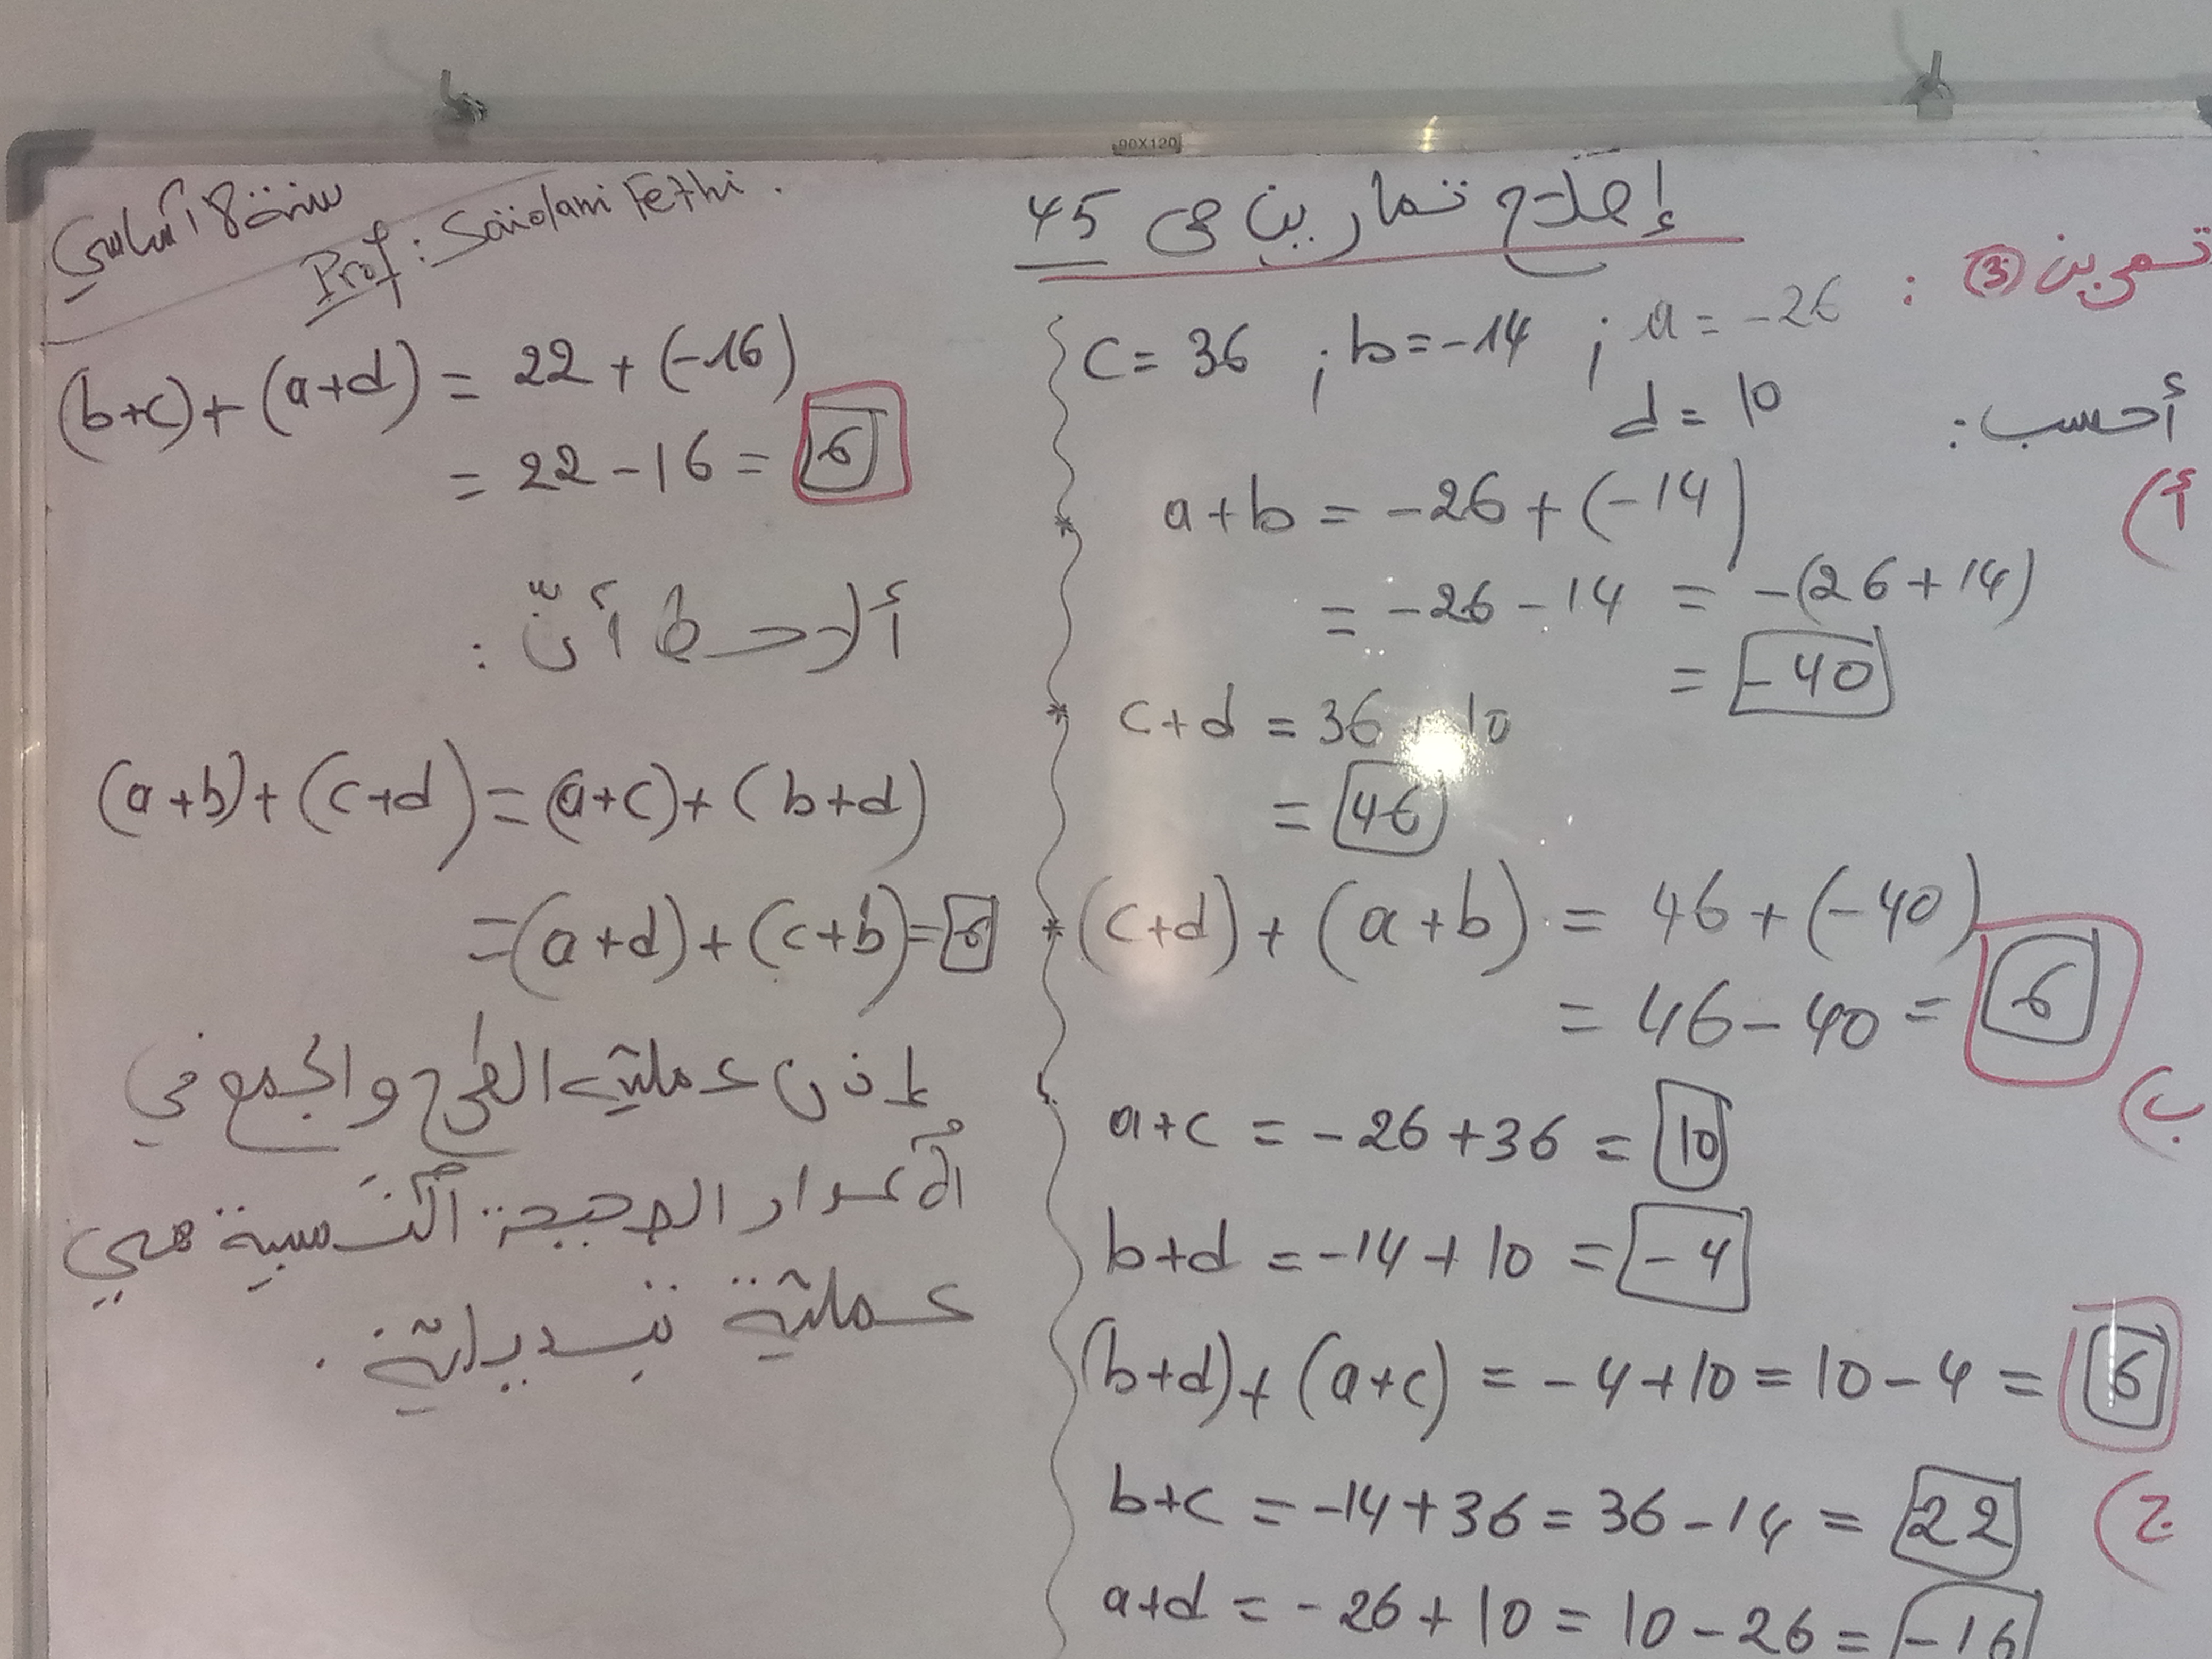 90X120
سنة 8 أساسي
Prof : Saïdani Fethi .
إصلاح تمارين ص 45
تمرين ③ :
c = 36 ; b = -14 ; a = -26
d = 10
أحسب :
أ)
a+b = -26 + (-14)
= -26 - 14 = -(26+14)
= -40
* c+d = 36 + 10
= 46
* (c+d) + (a+b) = 46 + (-40)
= 46 - 40 = 6
ب)
a+c = -26 +36 = 10
b+d = -14 + 10 = -4
(b+d) + (a+c) = -4+10 = 10-4 = 6
ج)
b+c = -14+36 = 36-14 = 22
a+d = -26+10 = 10-26 = -16
(b+c)+(a+d) = 22 + (-16)
= 22 - 16 = 6
ألاحظ أنّ :
(a+b)+(c+d) = (a+c)+(b+d)
=(a+d)+(c+b)=6
إذن عملية الطرح والجمع في
الأعداد الصحيحة النسبية هي
عملية تبديلية .